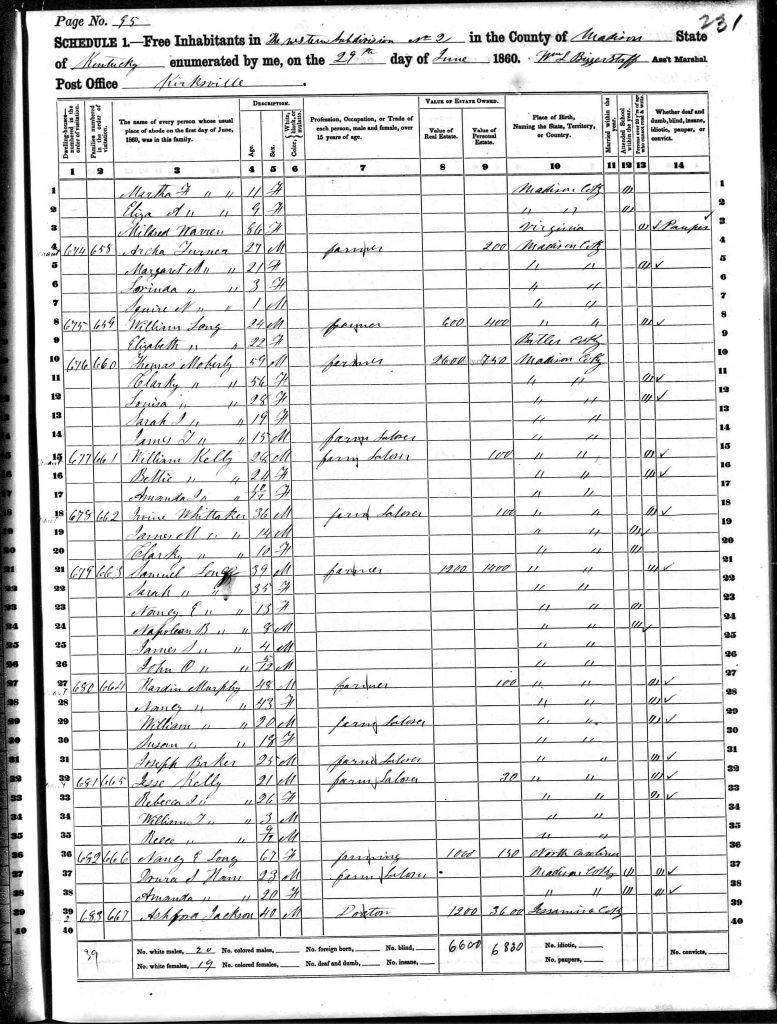 Page No. 95
231
SCHEDULE 1.—Free Inhabitants in The western Subdivision No 2 in the County of Madison State
of Kentucky enumerated by me, on the 29th day of June 1860. Wm L Biggerstaff Ass't Marshal
Post Office Kirksville.
DESCRIPTION. VALUE OF ESTATE OWNED.
Dwelling-houses—numbered in the order of visitation. Families numbered in the order of visitation. The name of every person whose usual place of abode on the first day of June, 1860, was in this family. Age. Sex. Color, White, black, or mulatto. Profession, Occupation, or Trade of each person, male and female, over 15 years of age. Value of Real Estate. Value of Personal Estate. Place of Birth, Naming the State, Territory, or Country. Married within the year. Attended School within the year. Persons over 20 y'rs of age who cannot read & write. Whether deaf and dumb, blind, insane, idiotic, pauper, or convict.
1 2 3 4 5 6 7 8 9 10 11 12 13 14
1 Martha F " " 11 F Madison Co Ky 1
2 Eliza A " " 9 F " " 2
3 Mildred Warren 86 F Virginia Pauper 3
4 674 658 Archa Turner 27 M farmer 200 Madison Co Ky 4
5 Margaret A " " 21 F " " 5
6 Lorinda " " 3 F " " 6
7 Squire N " " 1 M " " 7
8 675 659 William Long 24 M farmer 600 400 " " 8
9 Elizabeth " " 22 F Butler Co Ky 9
10 676 660 Thomas Moberly 59 M farmer 2600 750 Madison Co Ky 10
11 Clarky " " 56 F " " 11
12 Louisa " " 28 F " " 12
13 Sarah J " " 19 F " " 13
14 James T " " 15 M farm Laborer " " 14
15 677 661 William Kelly 26 M farm Laborer 100 " " 15
16 Bettie " " 24 F " " 16
17 Amanda J " " F " " 17
18 678 662 Irvine Whittaker 36 M farm Laborer 100 " " 18
19 James M " " 14 M " " 19
20 Clarky " " 10 F " " 20
21 679 663 Samuel Long 39 M farmer 1200 1400 " " 21
22 Sarah " " 35 F " " 22
23 Nancy E " " 13 F " " 23
24 Napoleon B " " 8 M " " 24
25 James S " " 4 M " " 25
26 John O " " 5/12 M " " 26
27 680 664 Hardin Murphy 48 M farmer 100 " " 27
28 Nancy " " 43 F " " 28
29 William " " 20 M farm Laborer " " 29
30 Susan " " 18 F 30
31 Joseph Baker 25 M farm Laborer " " 31
32 681 665 Jesse Kelly 21 M farm Laborer 30 " " 32
33 Rebecca J " " 26 F " " 33
34 William T " " 3 M " " 34
35 Reece " " 9/12 M " " 35
36 682 666 Nancy E Long 67 F farming 1000 150 North Carolina 36
37 Drura S Ham 23 M farm Laborer Madison Co Ky 37
38 Amanda " " 20 F " " 38
39 683 667 Ashford Jackson 40 M Doctor 1200 3600 Jessamine Co Ky 39
40 40
39 No. white males, 20 No. colored males, No. foreign born, No. blind, 6600 6830 No. idiotic,
No. white females, 19 No. colored females, No. deaf and dumb, No. insane, No. paupers, No. convicts,